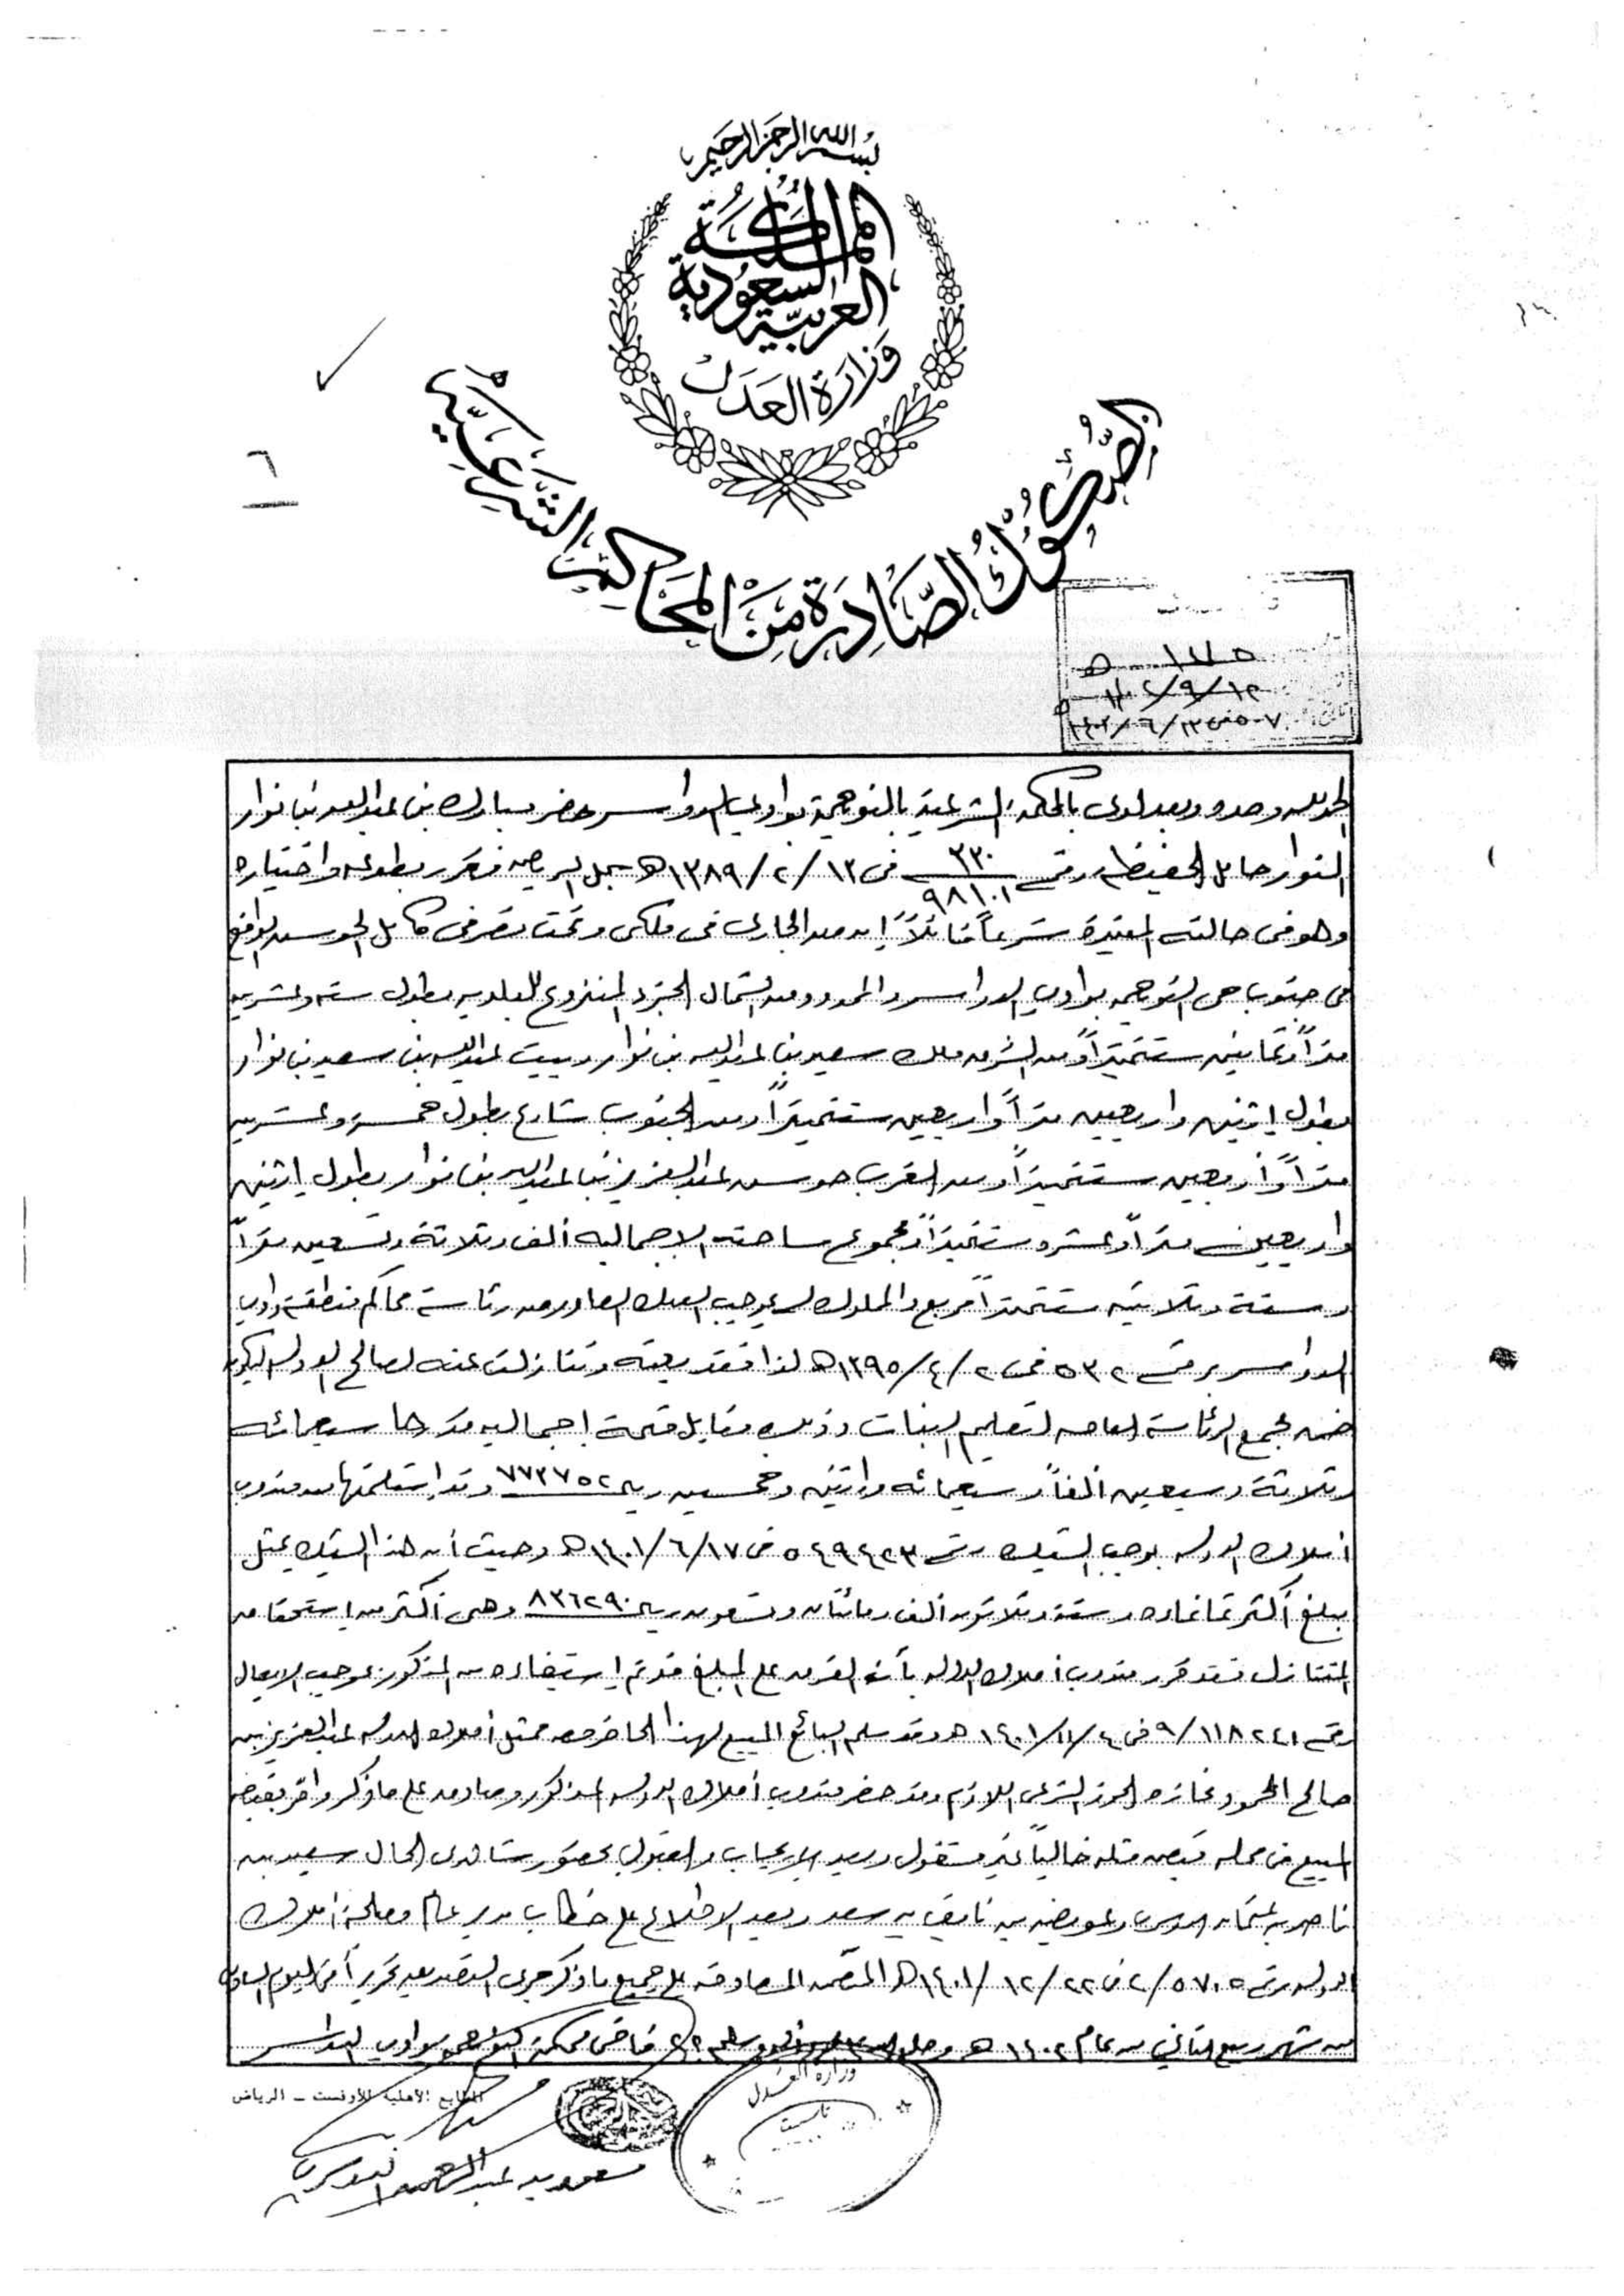 بسم الله الرحمن الرحيم
المملكة
العربية السعودية
وزارة العدل
الصكوك الصادرة من المحاكم الشرعية
٦
الحمد لله وحده وبعد لدى بالمحكمة الشرعية بالنويعمة بوادي الدواسر حضر مبارك بن عبد الله بن نوار
النوار حامل الحفيظة رقم ٩٨١٠١/٣٣٠ في ١٣٨٩/٢/١٣هـ سجل الرياض فقرر بطوعه واختياره
وهو في حالته المعتبرة شرعاً قائلاً إن من الجاري في ملكي وتحت تصرفي كامل الحوش الواقع
في جنوب حي النويعمة بوادي الدواسر والمحدود من الشمال الجزء المنزوع للبلدية بطول ستة وعشرين
متراً وثمانين سنتمتراً ومن الشرق ملك سعيد بن عبد الله بن نوار وبيت عبد الله بن سعيد بن نوار
بطول اثنين وأربعين متراً وأربعين سنتمتراً ومن الجنوب شارع بطول خمسة وعشرين
متراً وأربعين سنتمتراً ومن الغرب حوش عبد العزيز بن عبد الله بن نوار بطول اثنين
وأربعين متراً وعشرة سنتمتراً ومجموع مساحته الإجمالية ألف وثلاثة وتسعين متراً
وستة وثلاثين سنتمتراً مربع والمملوك لي بموجب الصك الصادر من رئاسة محاكم منطقة وادي
الدواسر برقم ٥٣٢ في ١٣٩٥/٤/٢هـ لذا فقد بعته وتنازلت عنه لصالح الدولة ليكون
ضمن مجمع الرئاسة العامة لتعليم البنات وذلك مقابل قيمة إجمالية قدرها سبعمائة
وثلاثة وسبعين ألفاً وسبعمائة واثنين وخمسين ريال ٧٧٣٧٥٢ وقد استلمتها من مندوب
أملاك الدولة بموجب الشيك رقم ٥٤٩٤٢٣ في ١٤٠١/٦/١٧هـ وحيث أن هذا الشيك يمثل
مبلغ أكثر ثمانمائة وستة وثلاثون ألف ومائتان وتسعون ريال ٨٣٦٢٩٠ وهي أكثر من استحقاق
المتنازل فقد قرر مندوب أملاك الدولة بأن الفرق على المبلغ قد تم استيفاءه من المذكور بموجب الإيصال
رقم ٩/١١٨٢٤١ في ١٤٠١/١١/٤هـ وقد سلم البائع المبيع لهذا الحاضر معه ممثل أملاك الدولة عبد العزيز بن
صالح المحمود فحازه الحوز الشرعي اللازم وقد حضر مندوب أملاك الدولة المذكور وصادق على ما ذكر وأقر بقبض
المبيع في محله قبض مثله خالياً غير مشغول وبعد الإيجاب والقبول بحضور شاهدي الحال سعيد بن
ناصر بن عثمان الدوسري وعويضه بن نايف بن سعد وبعد الاطلاع على خطاب مدير عام مصلحة أملاك
الدولة رقم ٢/٥٧٠٥ في ١٤٠١/١٢/٢٢هـ المتضمن المصادقة على جميع ما ذكر جرى التصديق تحريراً في اليوم السادس
من شهر ربيع الثاني من عام ١٤٠٢هـ وصلى الله على محمد وآله وسلم قاضي محكمة النويعمة بوادي الدواسر
المطابع الأهلية للأوفست - الرياض
وزارة العدل
سعود بن عبد الرحمن الدوسري